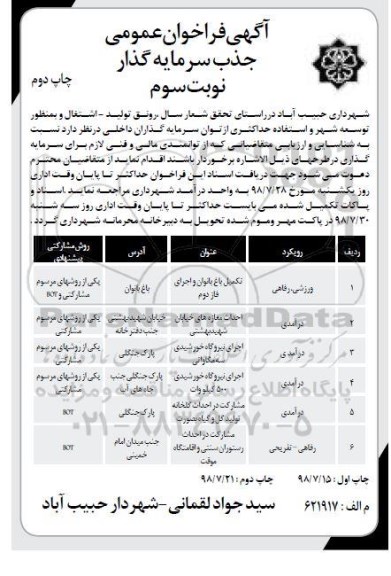 آگهی فراخوان عمومی
جذب سرمایه گذار
نوبت سوم
چاپ دوم
شهرداری حبیب آباد در راستای تحقق شعار سال رونق تولید - اشتغال و بمنظور
توسعه شهر و استفاده حداکثری از توان سرمایه گذاران داخلی در نظر دارد نسبت
به شناسایی و ارزیابی متقاضیانی که از توانمندی مالی و فنی لازم برای سرمایه
گذاری در طرحهای ذیل الاشاره برخوردار باشند اقدام نماید از متقاضیان محترم
دعوت می شود جهت دریافت اسناد این فراخوان حداکثر تا پایان وقت اداری
روز یکشنبه مورخ ۹۸/۷/۲۸ به واحد درآمد شهرداری مراجعه نمایند. اسناد و
پاکات تکمیل شده می بایست حداکثر تا پایان وقت اداری روز سه شنبه
۹۸/۷/۳۰ در پاکت مهر وموم شده تحویل به دبیرخانه محرمانه شهرداری گردد .
ردیف رویکرد عنوان آدرس روش مشارکتی پیشنهادی
۱ ورزشی، رفاهی تکمیل باغ بانوان و اجرای فاز دوم باغ بانوان یکی از روشهای مرسوم مشارکتی و BOT
۲ درآمدی احداث مغازه های خیابان شهید بهشتی خیابان شهید بهشتی جنب دفتر خانه یکی از روشهای مرسوم مشارکتی
۳ درآمدی اجرای نیروگاه خورشیدی پارک جنگلی یکی از روشهای مرسوم مشارکتی
۴ درآمدی اجرای نیروگاه خورشیدی ۵۰۰ کیلو وات پارک جنگلی جنب چاه های آب یکی از روشهای مرسوم مشارکتی
۵ درآمدی مشارکت در احداث گلخانه تولید گل و گیاه بصورت پارک جنگلی BOT
۶ رفاهی - تفریحی مشارکت در احداث رستوران سنتی و اقامتگاه موقت جنب میدان امام خمینی BOT
۰۲۱-۸۸۳۴۹۶۷۰-۵
چاپ اول : ۹۸/۷/۱۵ چاپ دوم : ۹۸/۷/۲۱
م الف : ۶۲۱۹۱۷ سید جواد لقمانی -شهردار حبیب آباد